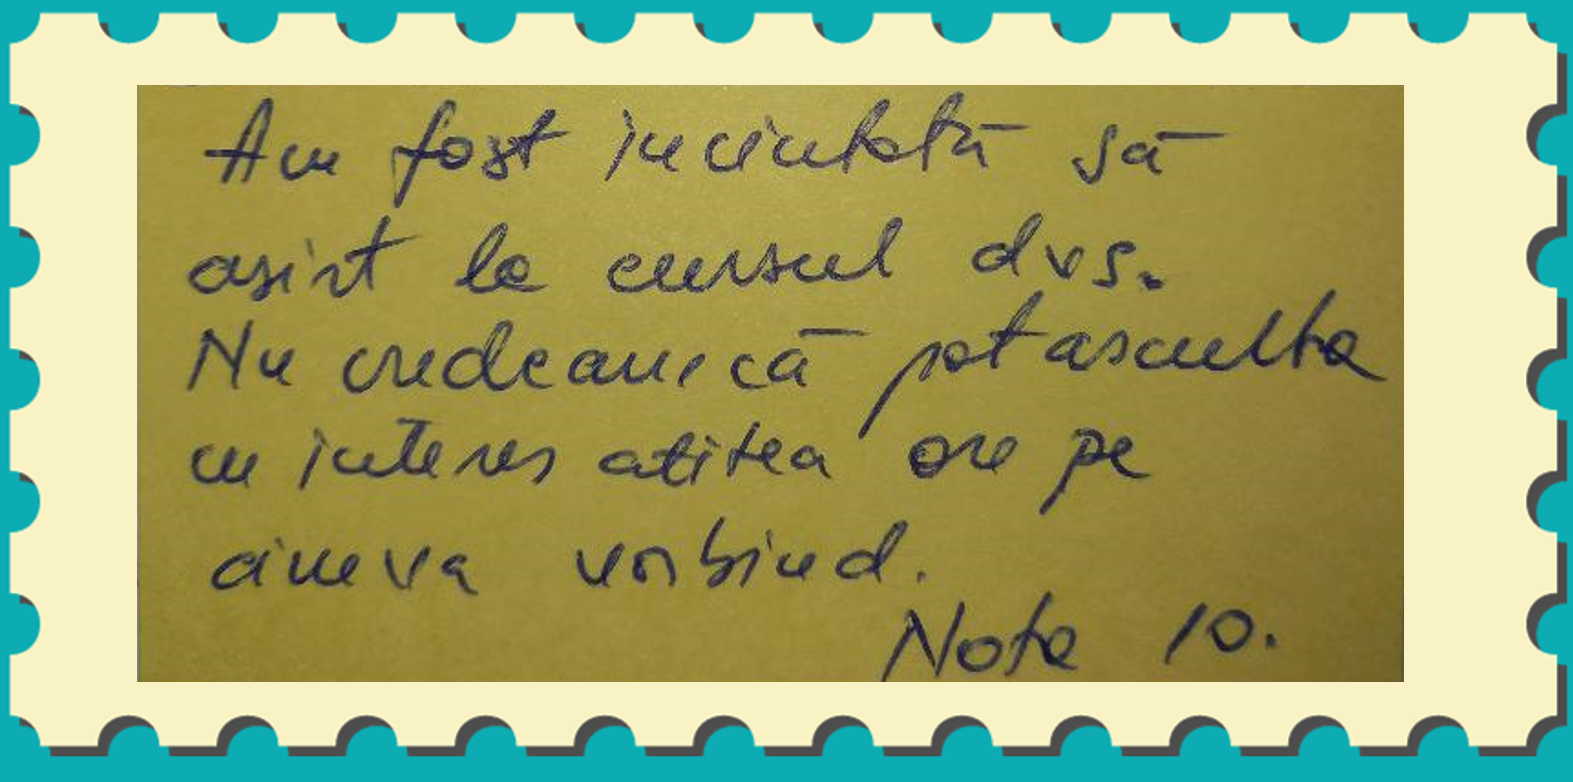 Am fost incintată să
asist la cursul dvs.
Nu credeam că pot asculta
cu interes atitea ore pe
cineva vorbind.
Nota 10.